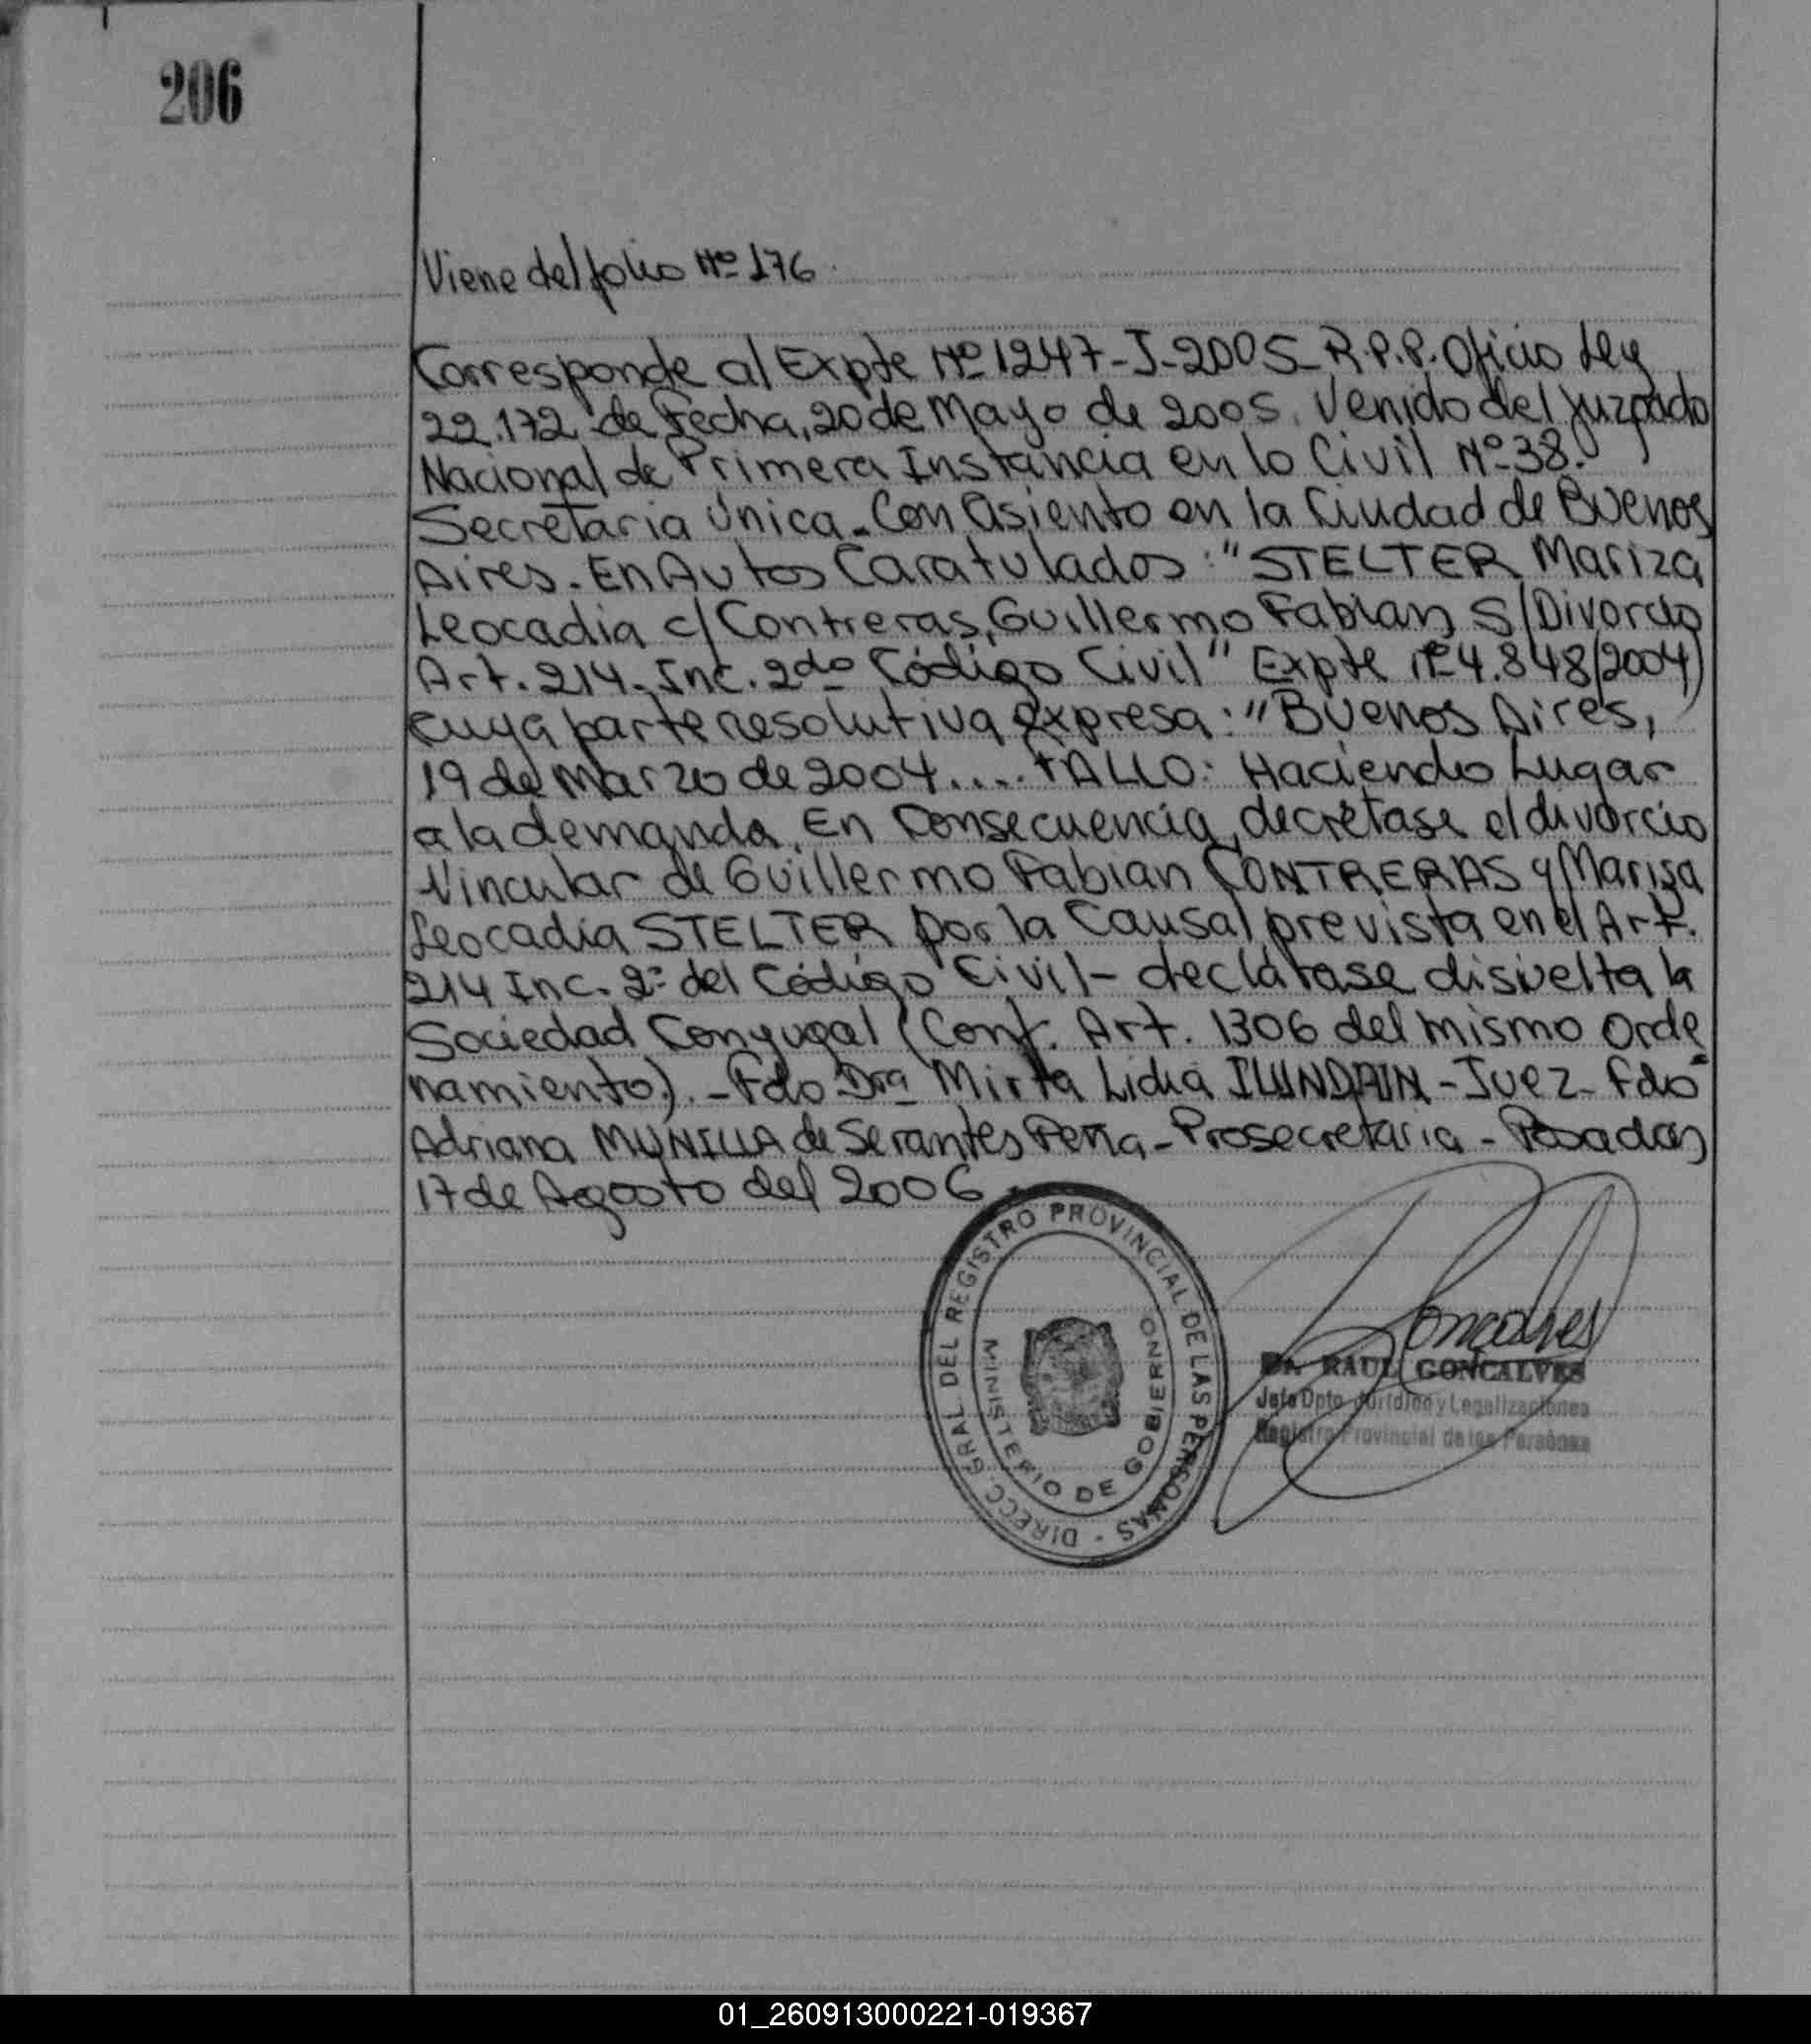 206
Viene del folio Nº 176
Corresponde al Expte Nº 1247-J-2005-R.P.P. Oficio Ley
22.172 de Fecha, 20 de Mayo de 2005. Venido del Juzgado
Nacional de Primera Instancia en lo Civil Nº 38.
Secretaria Única. Con Asiento en la Ciudad de Buenos
Aires. En Autos Caratulados: "STELTER Mariza
Leocadia c/ Contreras, Guillermo Fabian S/ Divorcio
Art. 214. Inc. 2do Código Civil" Expte nº 4.848/2004)
cuya parte resolutiva expresa: "Buenos Aires,
19 de Marzo de 2004.... FALLO: Haciendo Lugar
a la demanda. En Consecuencia, decrétase el divorcio
Vincular de Guillermo Fabian CONTRERAS y Marisa
Leocadia STELTER por la Causal prevista en el Art.
214 Inc. 2º del Código Civil - declárase disuelta la
Sociedad Conyugal (Conf. Art. 1306 del mismo Orde
namiento). - Fdo Dra Mirta Lidia ILUNDAIN - Juez - Fdo
Adriana MUNILLA de Serantes Peña - Prosecretaria - Posadas
17 de Agosto del 2006.
DIRECC. GRAL DEL REGISTRO PROVINCIAL DE LAS PERSONAS -
MINISTERIO DE GOBIERNO
Goncalves
Dr. RAUL GONCALVES
Jefe Dpto. Jurídico y Legalizaciones
Registro Provincial de las Personas
01_260913000221-019367